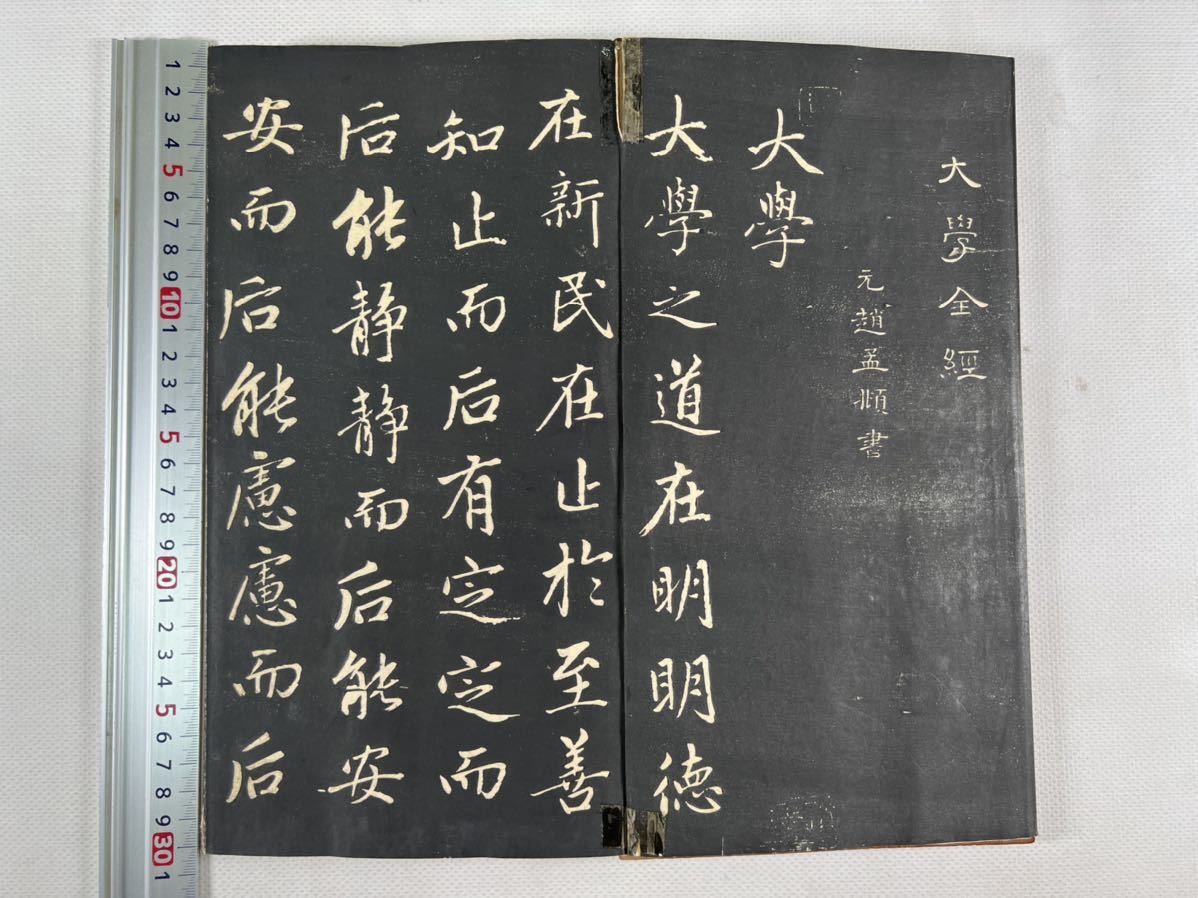 大學全經
元趙孟頫書
大學
大學之道在明明德
在新民在止於至善
知止而后有定定而
后能静静而后能安
安而后能慮慮而后
1 2 3 4 5 6 7 8 9 10 1 2 3 4 5 6 7 8 9 20 1 2 3 4 5 6 7 8 9 30 1